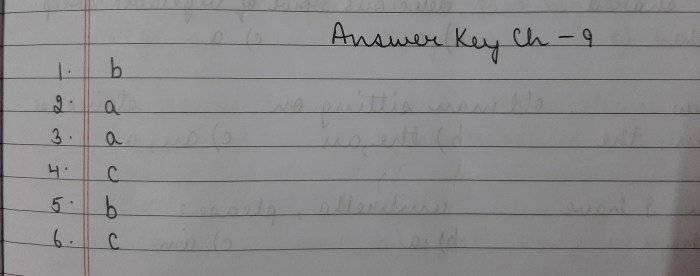 Answer Key Ch - 9
1. b
2. a
3. a
4. c
5. b
6. c